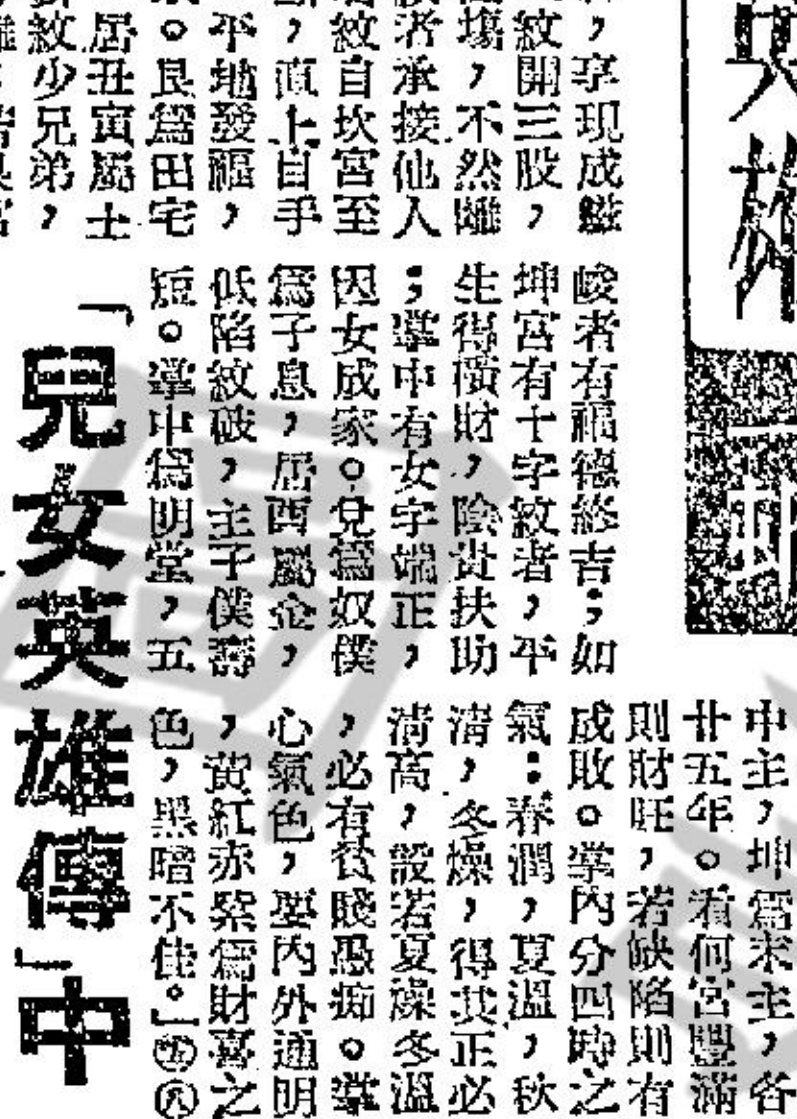 ，享現成繼
紋開三股，
塲，不然雖
者承接他人
紋自坎宮至
，直上自手
平地發福，
。艮爲田宅
居丑寅屬土
紋少兄弟，
峻者有福德終吉；如
坤宮有十字紋者，平
生得橫財，陰貴扶助
；掌中有女字端正，
因女成家。兌爲奴僕
爲子息，居酉屬金，
低陷紋破，主子僕壽
短。掌中爲明堂，五
中主，坤爲末主，各
廿五年。看何宮豐滿
則財旺，若缺陷則有
成敗。掌內分四時之
氣：春潤，夏溫，秋
清，冬燥，得其正必
清高，設若夏燥冬溫
，必有貧賤愚痴。掌
心氣色，要內外通明
，黃紅赤紫爲財喜之
色，黑暗不佳。」
「兒女英雄傳」中
英雄